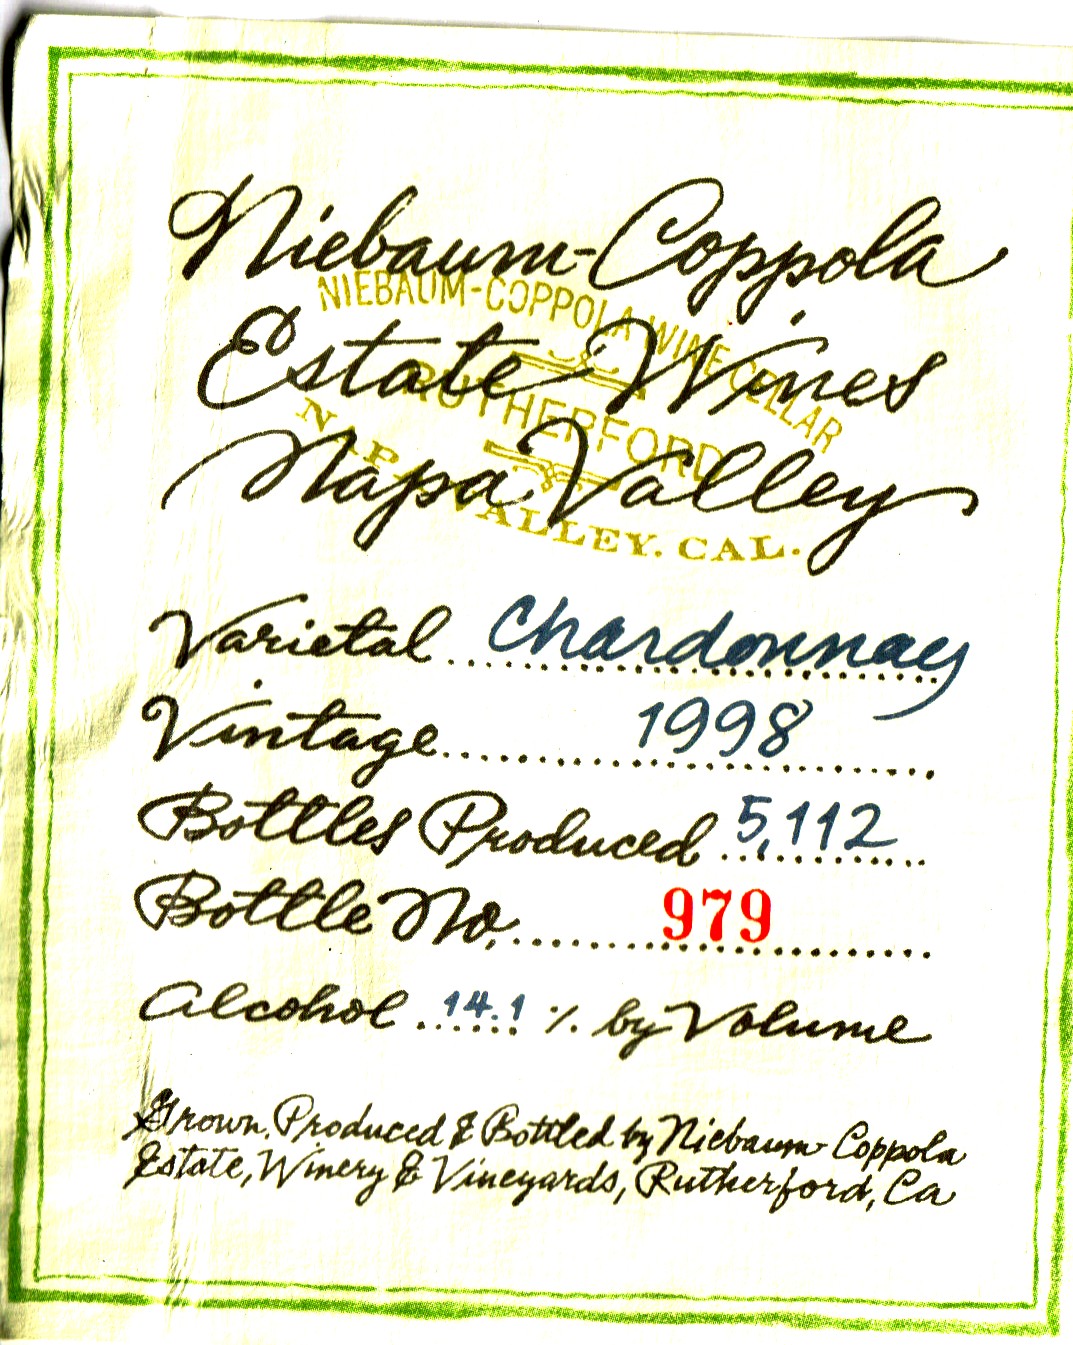 Niebaum-Coppola
NIEBAUM-COPPOLA WINE CELLAR
Estate Wines
RUTHERFORD
Napa Valley
NAPA VALLEY. CAL.
Varietal .......... Chardonnay
Vintage .......... 1998
Bottles Produced 5,112
Bottle No. .......... 979
Alcohol 14.1 % by Volume
Grown, Produced & Bottled by Niebaum-Coppola
Estate, Winery & Vineyards, Rutherford, Ca